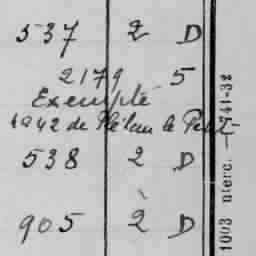 537 2 D
2179 5
Exempté
1942 de Plélan le Petit
538 2 D
905 2 D
1003 nterc. — 741-32